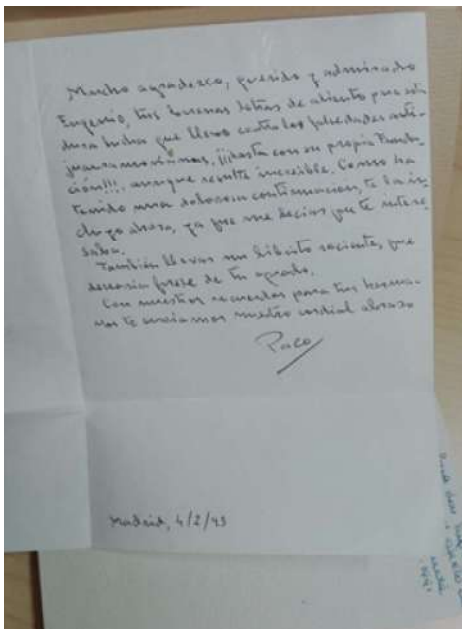 Mucho agradezco, querido y admirado
Eugenio, tus buenas letras de aliento para esta
dura lucha que llevo contra las falsedades anti-
juanramonianas, ¡¡¡hasta con su propia Funda-
ción!!!, aunque resulte increíble. Como ha
tenido una dolorosa continuación, te la in-
cluyo ahora, ya que me decías que te intere-
saba.
También llevas un librito reciente, que
desearía fuese de tu agrado.
Con nuestros recuerdos para tus herma-
nas te enviamos nuestro cordial abrazo
Paco
Madrid, 4/2/93